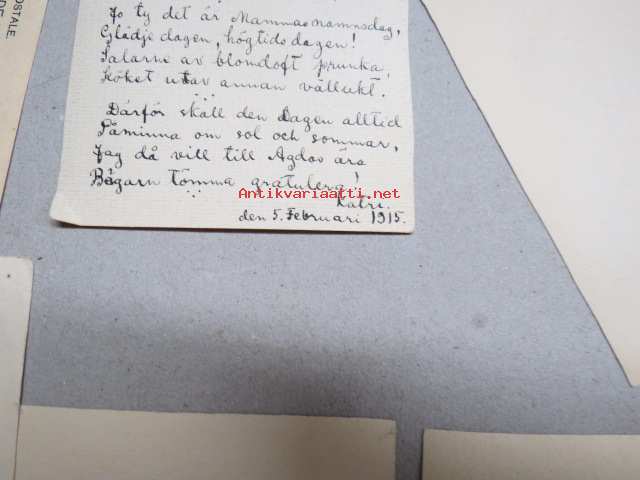 OSTALE.
Jo ty det är Mammas namnsdag,
Glädje dagen, högtids dagen!
Salarne av blomdoft prunka,
Köket utav annan vällukt.
Därför skall den Dagen alltid
Påminna om sol och sommar,
Jag då vill till Agdas ära
Bägarn tömma gratulera!
Antikvariaatti.net
Katri.
den 5. Februari 1915.